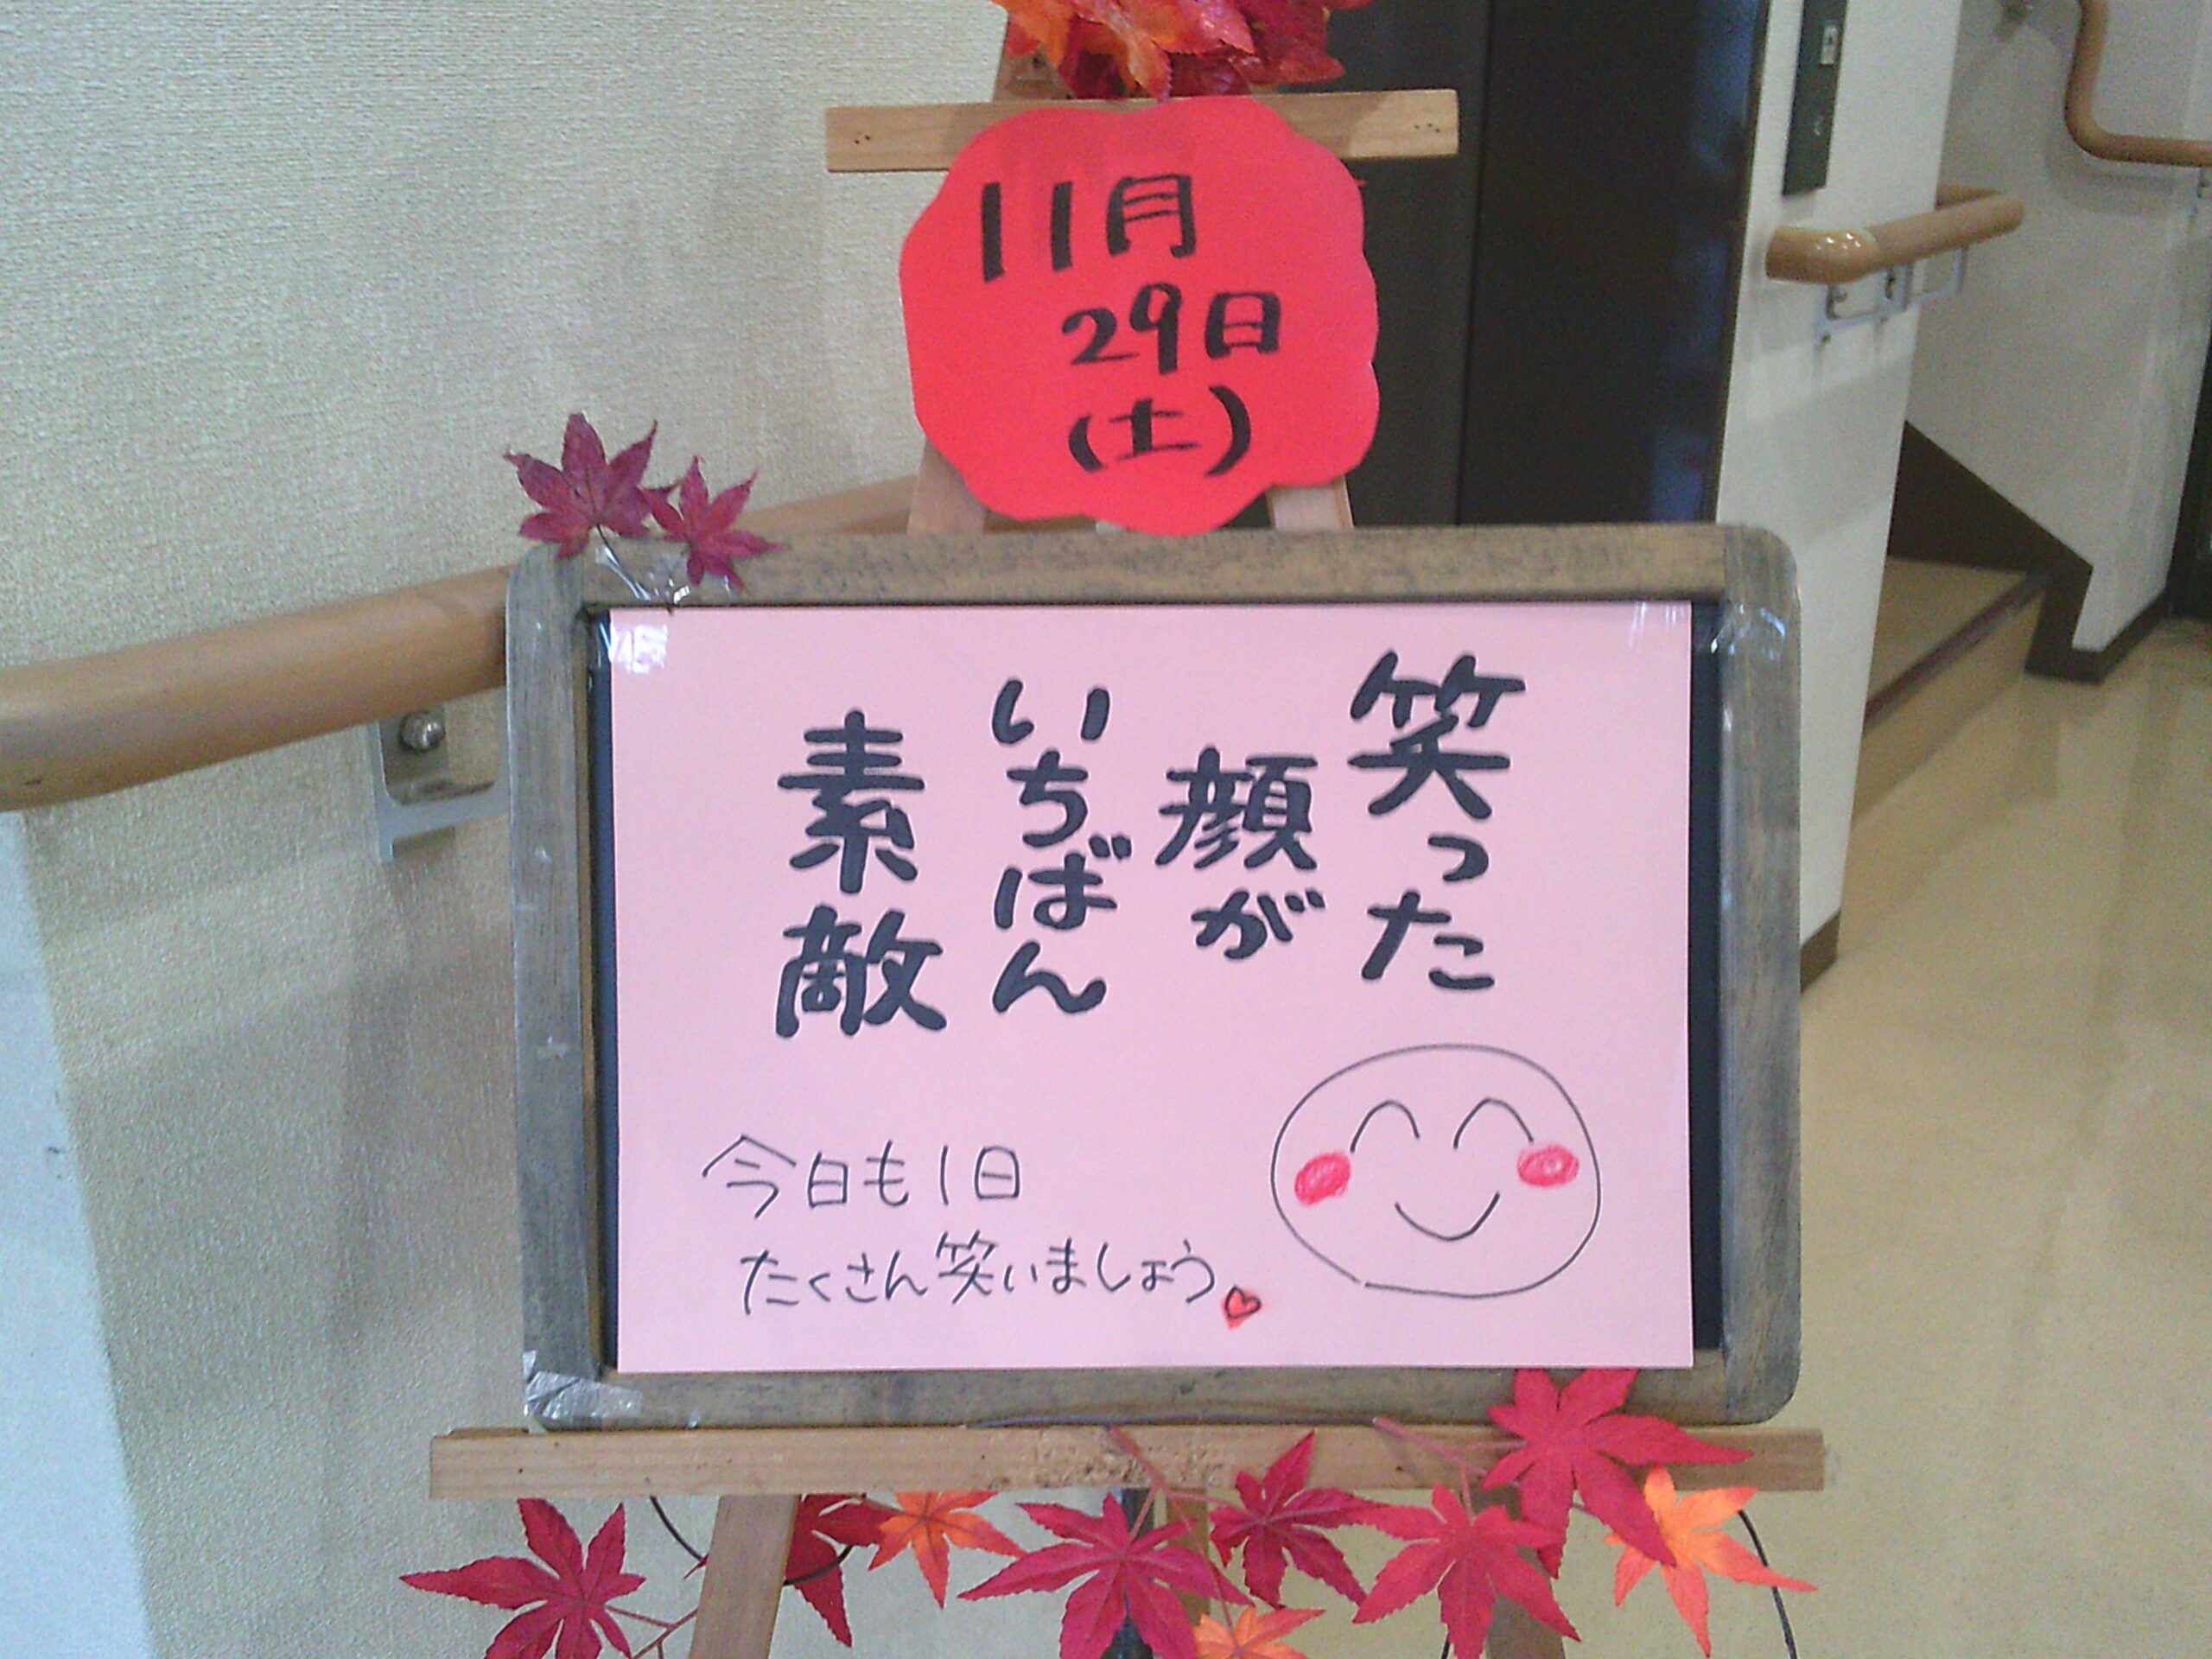 11月
29日
(土)
笑った
顔が
いちばん
素敵
今日も1日
たくさん笑いましょう